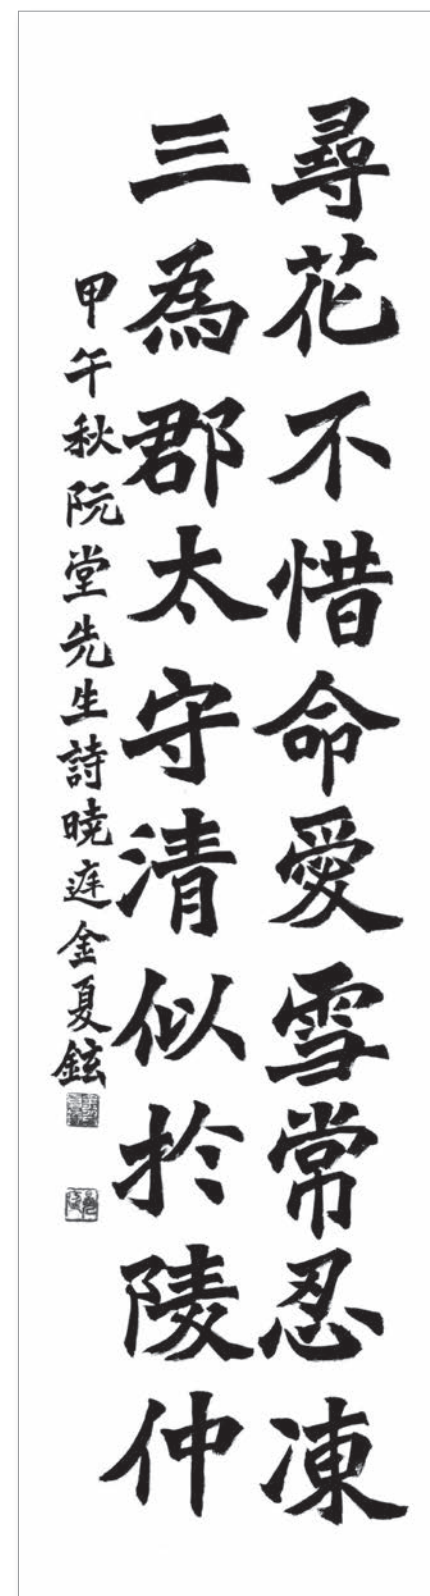 尋花不惜命愛雪常忍凍
三為郡太守清似於陵仲
甲午秋阮堂先生詩曉庭金夏鉉